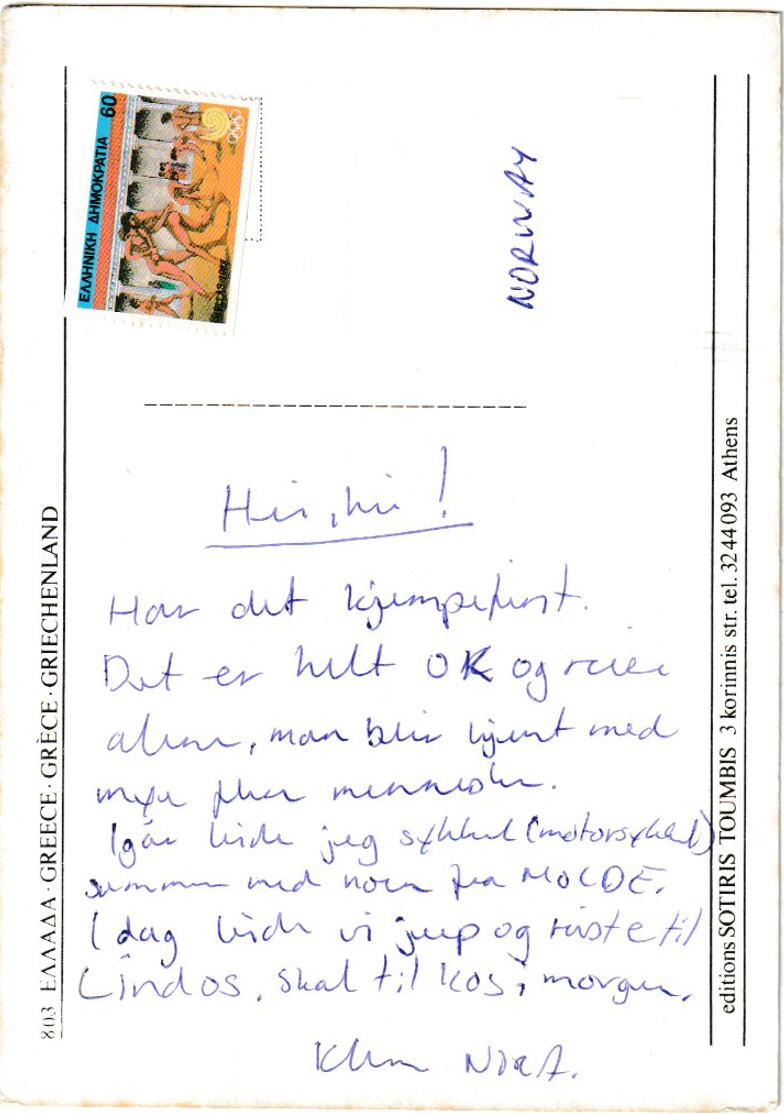 60
ΕΛΛΗΝΙΚΗ ΔΗΜΟΚΡΑΤΙΑ
HELLAS 1987
NORWAY
Hei, hei!
Har det kjempefint.
Det er helt OK og reise
alene, man blir kjent med
mye fler mennesker.
Igår leide jeg sykkel (motorsykkel)
sammen med noen fra MOLDE.
I dag leide vi jeep og reiste til
Lindos. Skal til Kos i morgen.
Klem
803 ΕΛΛΑΔΑ · GREECE · GRÈCE · GRIECHENLAND
editions SOTIRIS TOUMBIS 3 korinnis str. tel. 3244093 Athens